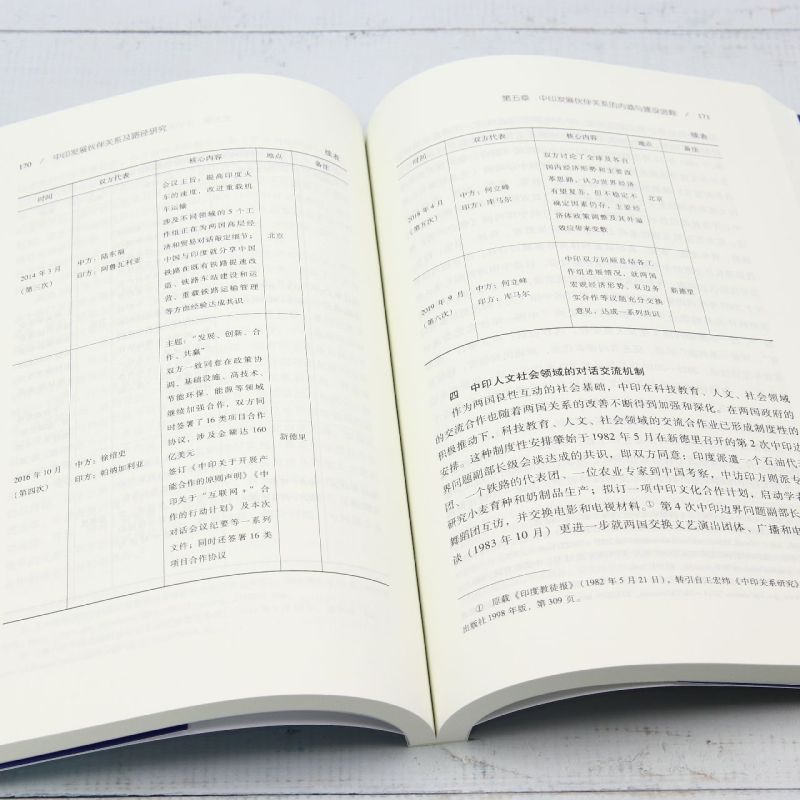 170 / 中印发展伙伴关系及路径研究
续表
时间 双方代表 核心内容 地点 备注
2014 年 3 月
（第三次）
中方：陆东福
印方：阿鲁瓦利亚
会议主旨：提高印度火
车的速度，改进重载机
车运输
涉及不同领域的 5 个工
作组正在为两国高层经
济和贸易对话敲定细节；
中国与印度就分享中国
铁路在既有铁路提速改
造、铁路车站建设和运
营、重载铁路运输管理
等方面经验达成共识
北京
2016 年 10 月
（第四次）
中方：徐绍史
印方：帕纳加利亚
主题：“发展、创新、合
作、共赢”
双方一致同意在政策协
调、基础设施、高技术、
节能环保、能源等领域
继续加强合作，双方同
时签署了 16 类项目合作
协议，涉及金额达 160
亿美元
签订《中印关于开展产
能合作的原则声明》《中
印关于“互联网＋”合
作的行动计划》及本次
对话会议纪要等一系列
文件；同时还签署 16 类
项目合作协议
新德里
第五章 中印发展伙伴关系的内涵与建设进程 / 171
续表
时间 双方代表 核心内容 地点 备注
2018 年 4 月
（第五次）
中方：何立峰
印方：库马尔
双方讨论了全球及各自
国内经济形势和主要改
革思路，认为世界经济
有望复苏，但不稳定不
确定因素仍存，主要经
济体政策调整及其外溢
效应带来变数
北京
2019 年 9 月
（第六次）
中方：何立峰
印方：库马尔
中印双方回顾总结各工
作组进展情况，就两国
宏观经济形势、双边务
实合作等议题充分交换
意见，达成一系列共识
新德里
四 中印人文社会领域的对话交流机制
作为两国良性互动的社会基础，中印在科技教育、人文、社会领域
的交流合作也随着两国关系的改善不断得到加强和深化。在两国政府的
积极推动下，科技教育、人文、社会领域的交流合作业已形成制度性的
安排。这种制度性安排肇始于 1982 年 5 月在新德里召开的第 2 次中印边
界问题副部长级会谈达成的共识，即双方同意：印度派遣一个石油代
团、一个铁路的代表团、一位农业专家到中国考察，中访印方则派专
研究小麦育种和奶制品生产；拟订一项中印文化合作计划，启动学者
舞蹈团互访，并交换电影和电视材料。① 第 4 次中印边界问题副部长
谈（1983 年 10 月）更进一步就两国交换文艺演出团体、广播和电
① 原载《印度教徒报》（1982 年 5 月 21 日），转引自王宏纬《中印关系研究》
出版社 1998 年版，第 309 页。